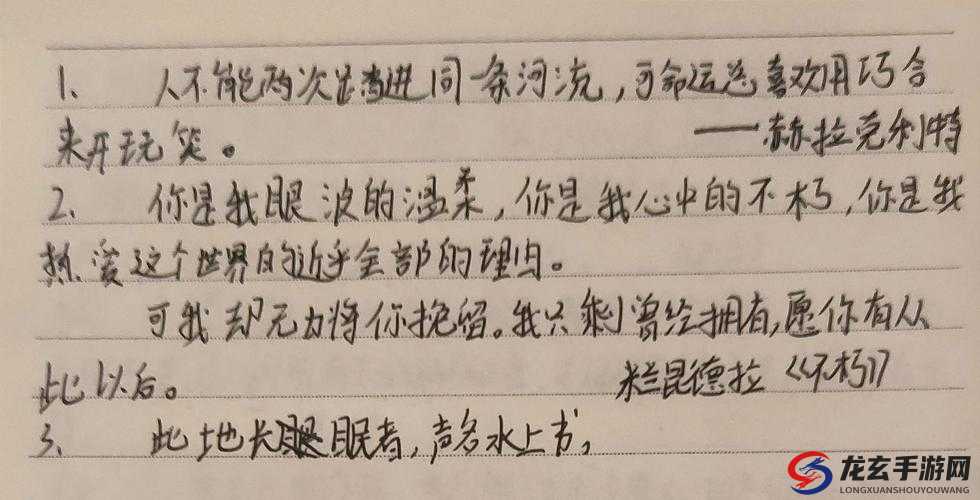 1、 人不能两次踏进同一条河流，可命运总喜欢用巧合
来开玩笑。 ——赫拉克利特
2、 你是我眼波的温柔，你是我心中的不朽，你是我
热爱这个世界的近乎全部的理由。
可我却无力将你挽留。我只剩曾经拥有，愿你有从
此以后。 米兰昆德拉《不朽》
3、 此地长眠者，声名水上书，
龙玄手游网
LONGXUANSHOUYOUWANG